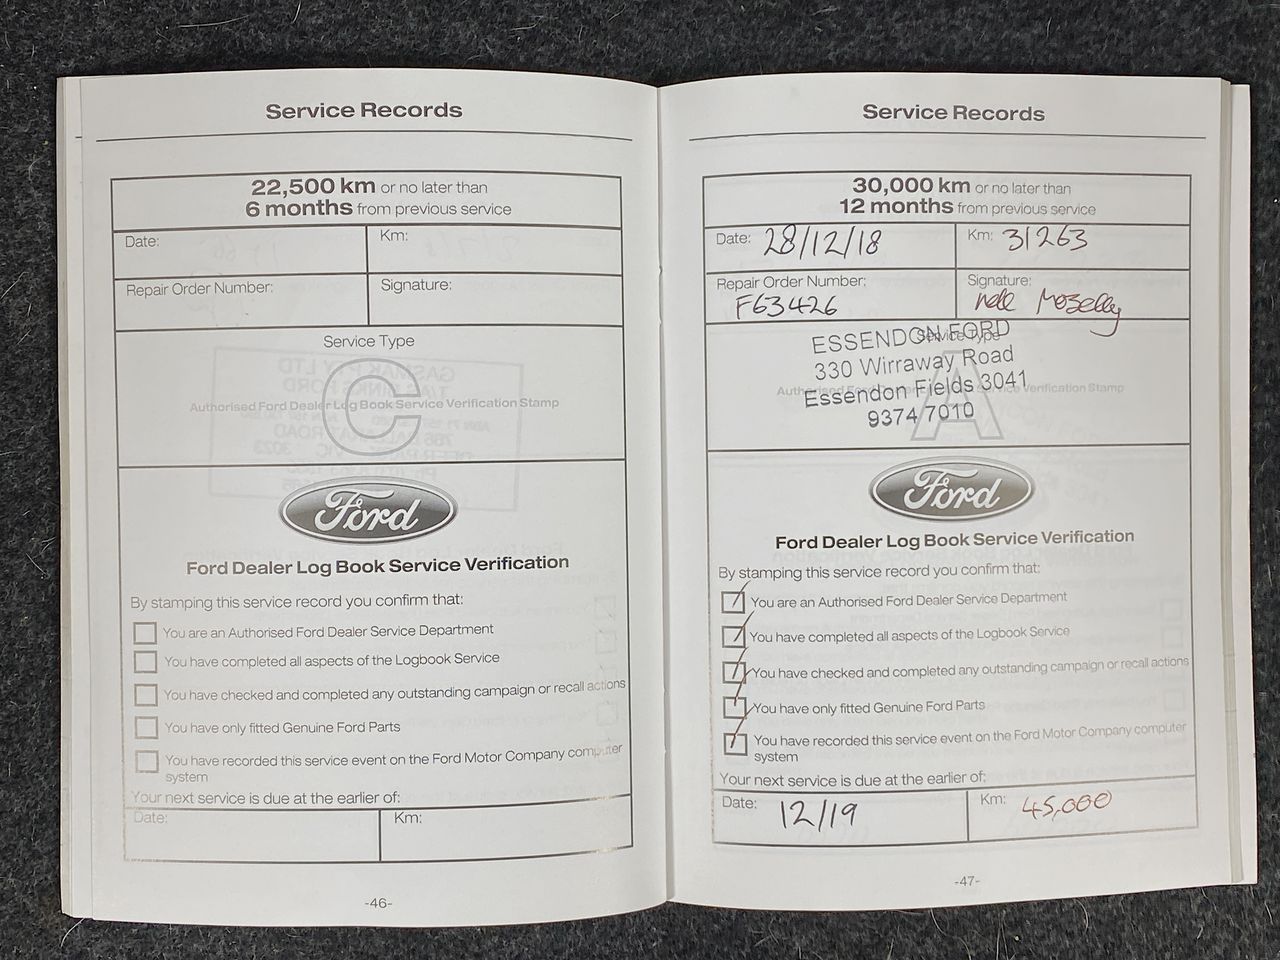 Service Records
22,500 km or no later than
6 months from previous service
Date:
Km:
Repair Order Number:
Signature:
Service Type
C
Authorised Ford Dealer Log Book Service Verification Stamp
Ford
Ford Dealer Log Book Service Verification
By stamping this service record you confirm that:
You are an Authorised Ford Dealer Service Department
You have completed all aspects of the Logbook Service
You have checked and completed any outstanding campaign or recall actions
You have only fitted Genuine Ford Parts
You have recorded this service event on the Ford Motor Company computer
system
Your next service is due at the earlier of:
Date:
Km:
-46-
Service Records
30,000 km or no later than
12 months from previous service
Date: 28/12/18
Km: 31263
Repair Order Number:
F63426
Signature:
Service Type
ESSENDON FORD
330 Wirraway Road
Essendon Fields 3041
9374 7010
A
Ford
Ford Dealer Log Book Service Verification
By stamping this service record you confirm that:
You are an Authorised Ford Dealer Service Department
You have completed all aspects of the Logbook Service
You have checked and completed any outstanding campaign or recall actions
You have only fitted Genuine Ford Parts
You have recorded this service event on the Ford Motor Company computer
system
Your next service is due at the earlier of:
Date: 12/19
Km: 45,000
-47-